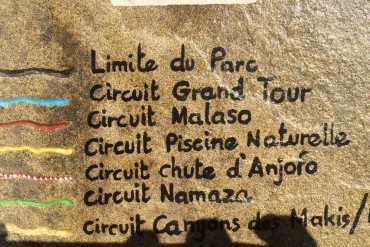 Limite du Parc
Circuit Grand Tour
Circuit Malaso
Circuit Piscine Naturelle
Circuit chute d'Anjofo
Circuit Namaza
Circuit Canyons des Makis/